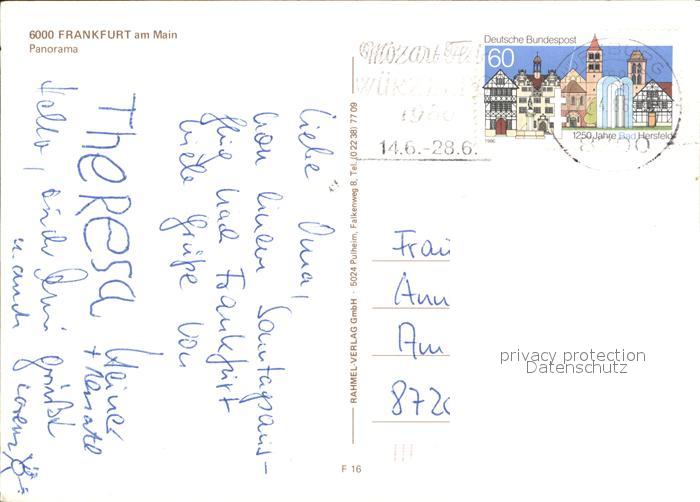 6000 FRANKFURT am Main
Panorama
Liebe Oma,
von einem Sonntagsaus-
flug nach Frankfurt
viele Grüße von
TheResa
Hallo, auch
u. auch
grüßt
RAHMEL-VERLAG GmbH · 5024 Pulheim, Falkenweg 8, Tel. (0 22 38) 77 09
F 16
Mozart Fest
WÜRZBURG
14.6.-28.6.
Deutsche Bundespost
60
1250 Jahre Bad Hersfeld
1986
Frau
Ann
Am
872
privacy protection
Datenschutz